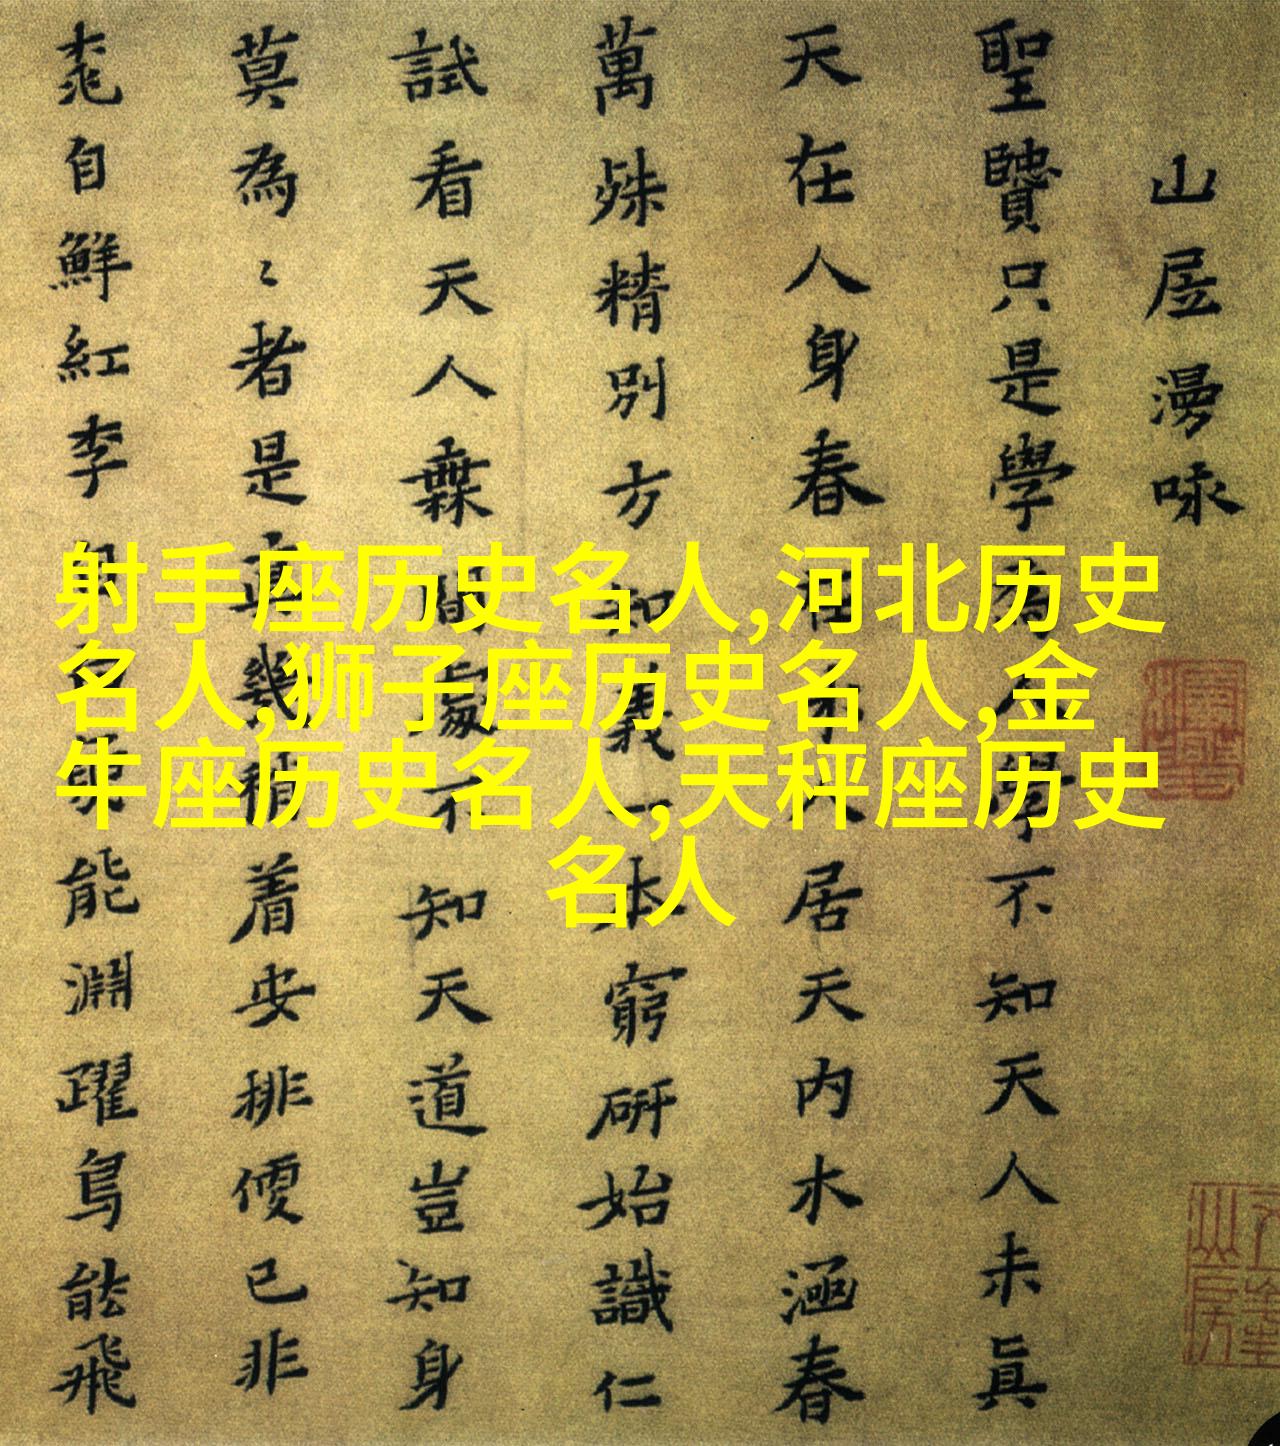 山居漫咏
聖贒只是學為人學不知天人未眞
天在人身春在木人居天内木涵春
萬殊精别方知義一本窮研始識仁
試看天人無間處不知天道豈知身
莫為〻者是真幾稍着安排便已非
桃自鮮紅李自白魚能淵躍鳥能飛
射手座历史名人,河北历史
名人,狮子座历史名人,金
牛座历史名人,天秤座历史
名人